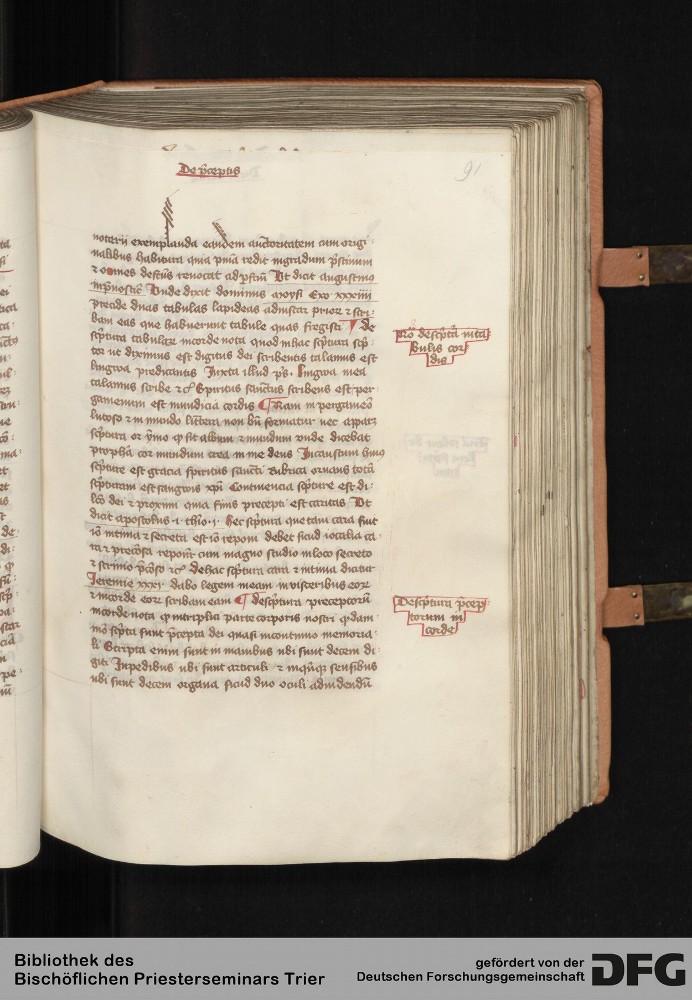 De p̄ceptis
91
notarij exemplanda eandem auctoritatem cum origi
nalibus habitura quia pena redit in gradum p̄stinum
⁊ omnes defc̄us revocat ad pfc̄um Vt dicit augustinus
Unde dixit dominus moysi Exo xxxiiij
precide duas tabulas lapideas ad instar prior̄ ⁊ scri
bam eas que habuerunt tabule quas fregisti ¶ de
sc̄ptura tabular̄ in corde nota quod in hac sc̄ptura sc̄p
tor ut diximus est digitus dei scribentis calamus est
lingwa predicantis Iuxta illud ps. Lingwa mea
calamus scribe ⁊c̄ Spiritus sanctus scribens est per
gamenum est mundicia cordis ¶ Nam in pergameno
lutoso ⁊ in mundo littera non bn̄ formatur nec apparz
sc̄ptura or̄ ymo ꝙ sit album ⁊ mundum unde dicebat
propha cor mundum crea in me deus Incaustum huius
sc̄pture est gracia spiritus sancti rubrica ornans totā
sc̄pturam est sangwis xp̄i Continencia sc̄pture est di
lc̄o dei ⁊ proximi quia finis precepti est caritas Vt
dicit apostolus .i. thio .i. hec sc̄ptura que tam cara fuit
iō intima ⁊ secreta est iō reponi debet sicud iocalia ca
ra ⁊ preciosa reponūt cum magno studio in loco secreto
⁊ scrinio p̄cioso ⁊c̄ de hac sc̄ptura cara ⁊ intima dicitur
Jeremie xxxi. dabo legem meam in visceribus eor̄
⁊ in corde eor̄ scribam eam ¶ de sc̄ptura preceptorū
in corde nota ꝙ in triplici parte corporis nostri quodam
mō sc̄pta sunt p̄cepta dei quasi in continuo memoria
li Scripta enim sunt in manibus ubi sunt decem di
giti In pedibus ubi sunt articuli ⁊ in quinque sensibus
ubi sunt decem organa sicud duo oculi ad videndū
Nō de sc̄pta in ta
bulis cor
dis
De sc̄ptura p̄cep
torum in
corde
Bibliothek des
Bischöflichen Priesterseminars Trier
gefördert von der
Deutschen Forschungsgemeinschaft
DFG